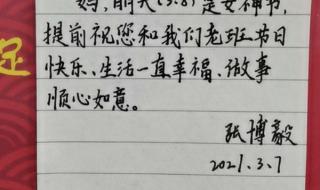 妈,明天(3.8)是女神节,
提前祝您和我们老班节日
快乐、生活一直幸福、做事
顺心如意。
张博毅
2021.3.7